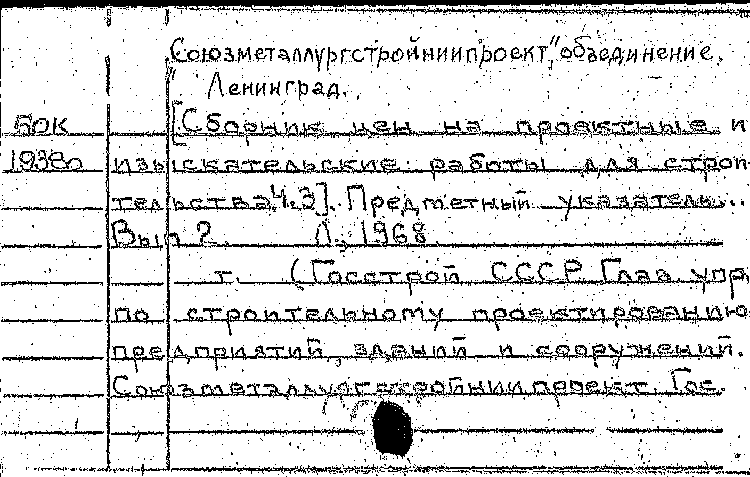 „Союзметаллургстройниипроект", объединение.
Ленинград.
50К [Сборник цен на проектные и
1938о изыскательские работы для строи
тельства Ч.3]. Предметный указатель...
Вып 2. Л., 1968.
т. (Госстрой СССР. Глав. упр.
по строительному проектированию
предприятий, зданий и сооружений.
Союзметаллургстройниипроект. Гос.